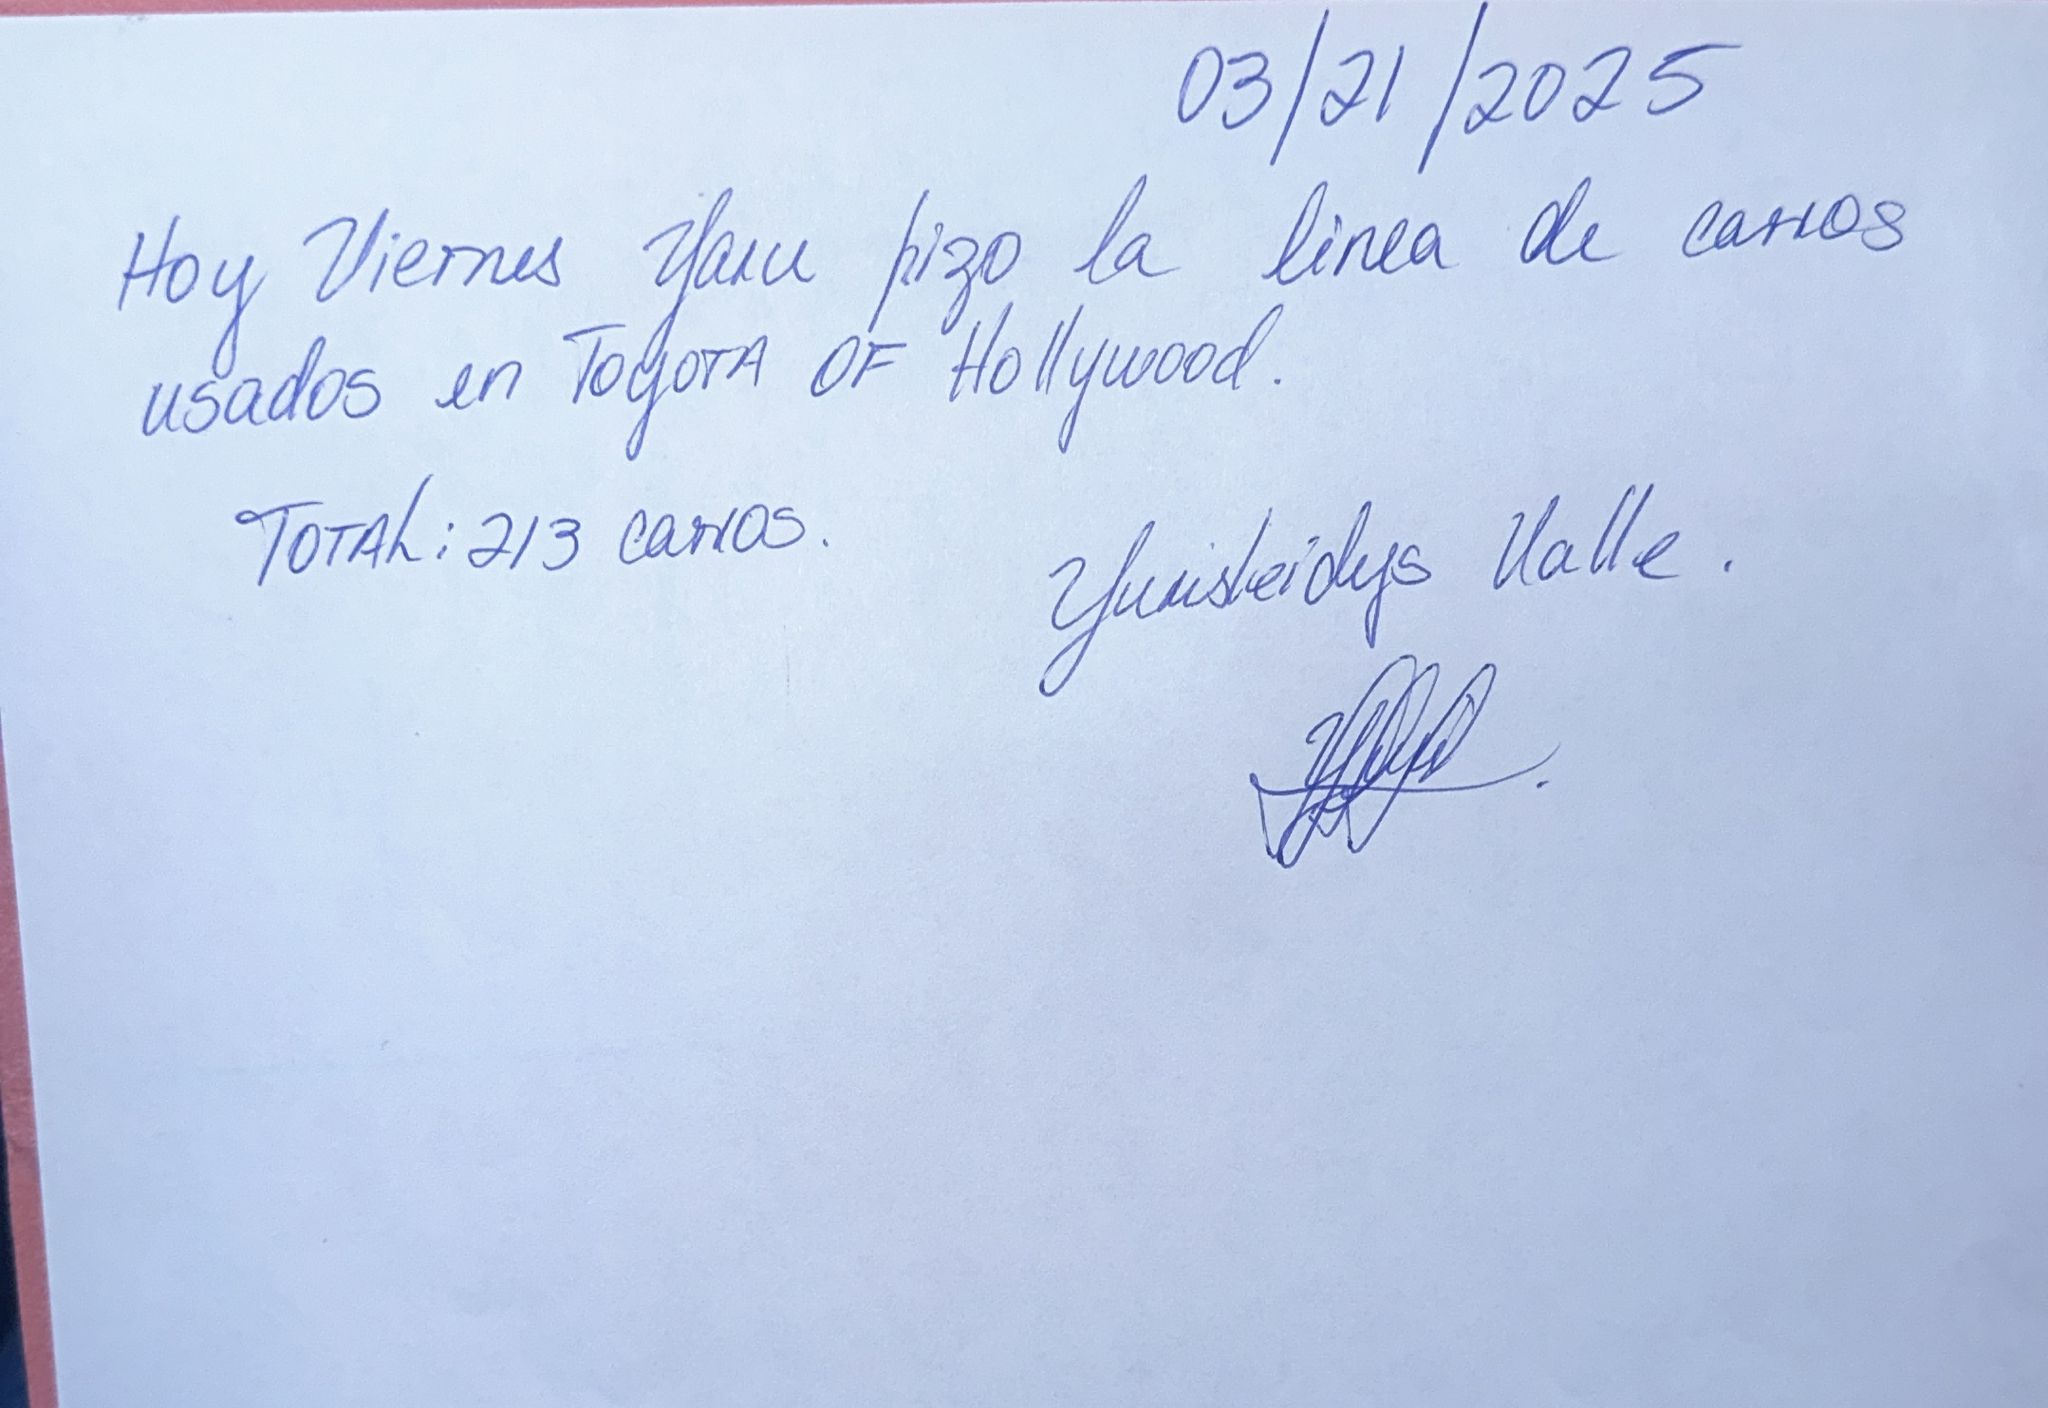 03/21/2025
Hoy Viernes Yaru hizo la linea de carros
usados en TOyOTA OF Hollywood.
TOTAL: 213 carros.
Yurisleidys Valle.